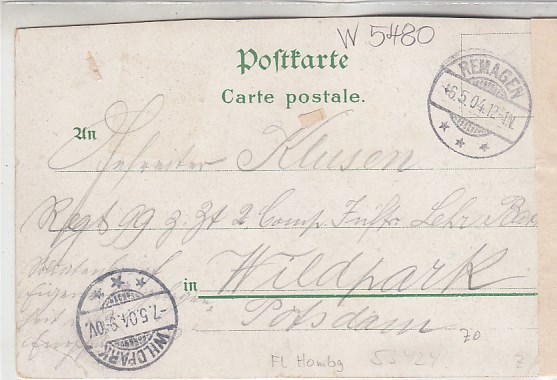 W 5480
Postkarte
Carte postale.
REMAGEN
*6.5.04.12-1N.
An
Gefreiter Klusen
Regt 99 z. Zt 2 Comp. Lehr
Soldatenbrief
in Wildpark
Eigen
Potsdam
WILDPARK
-7.5.04.9-10V.
70
Fl Hombg